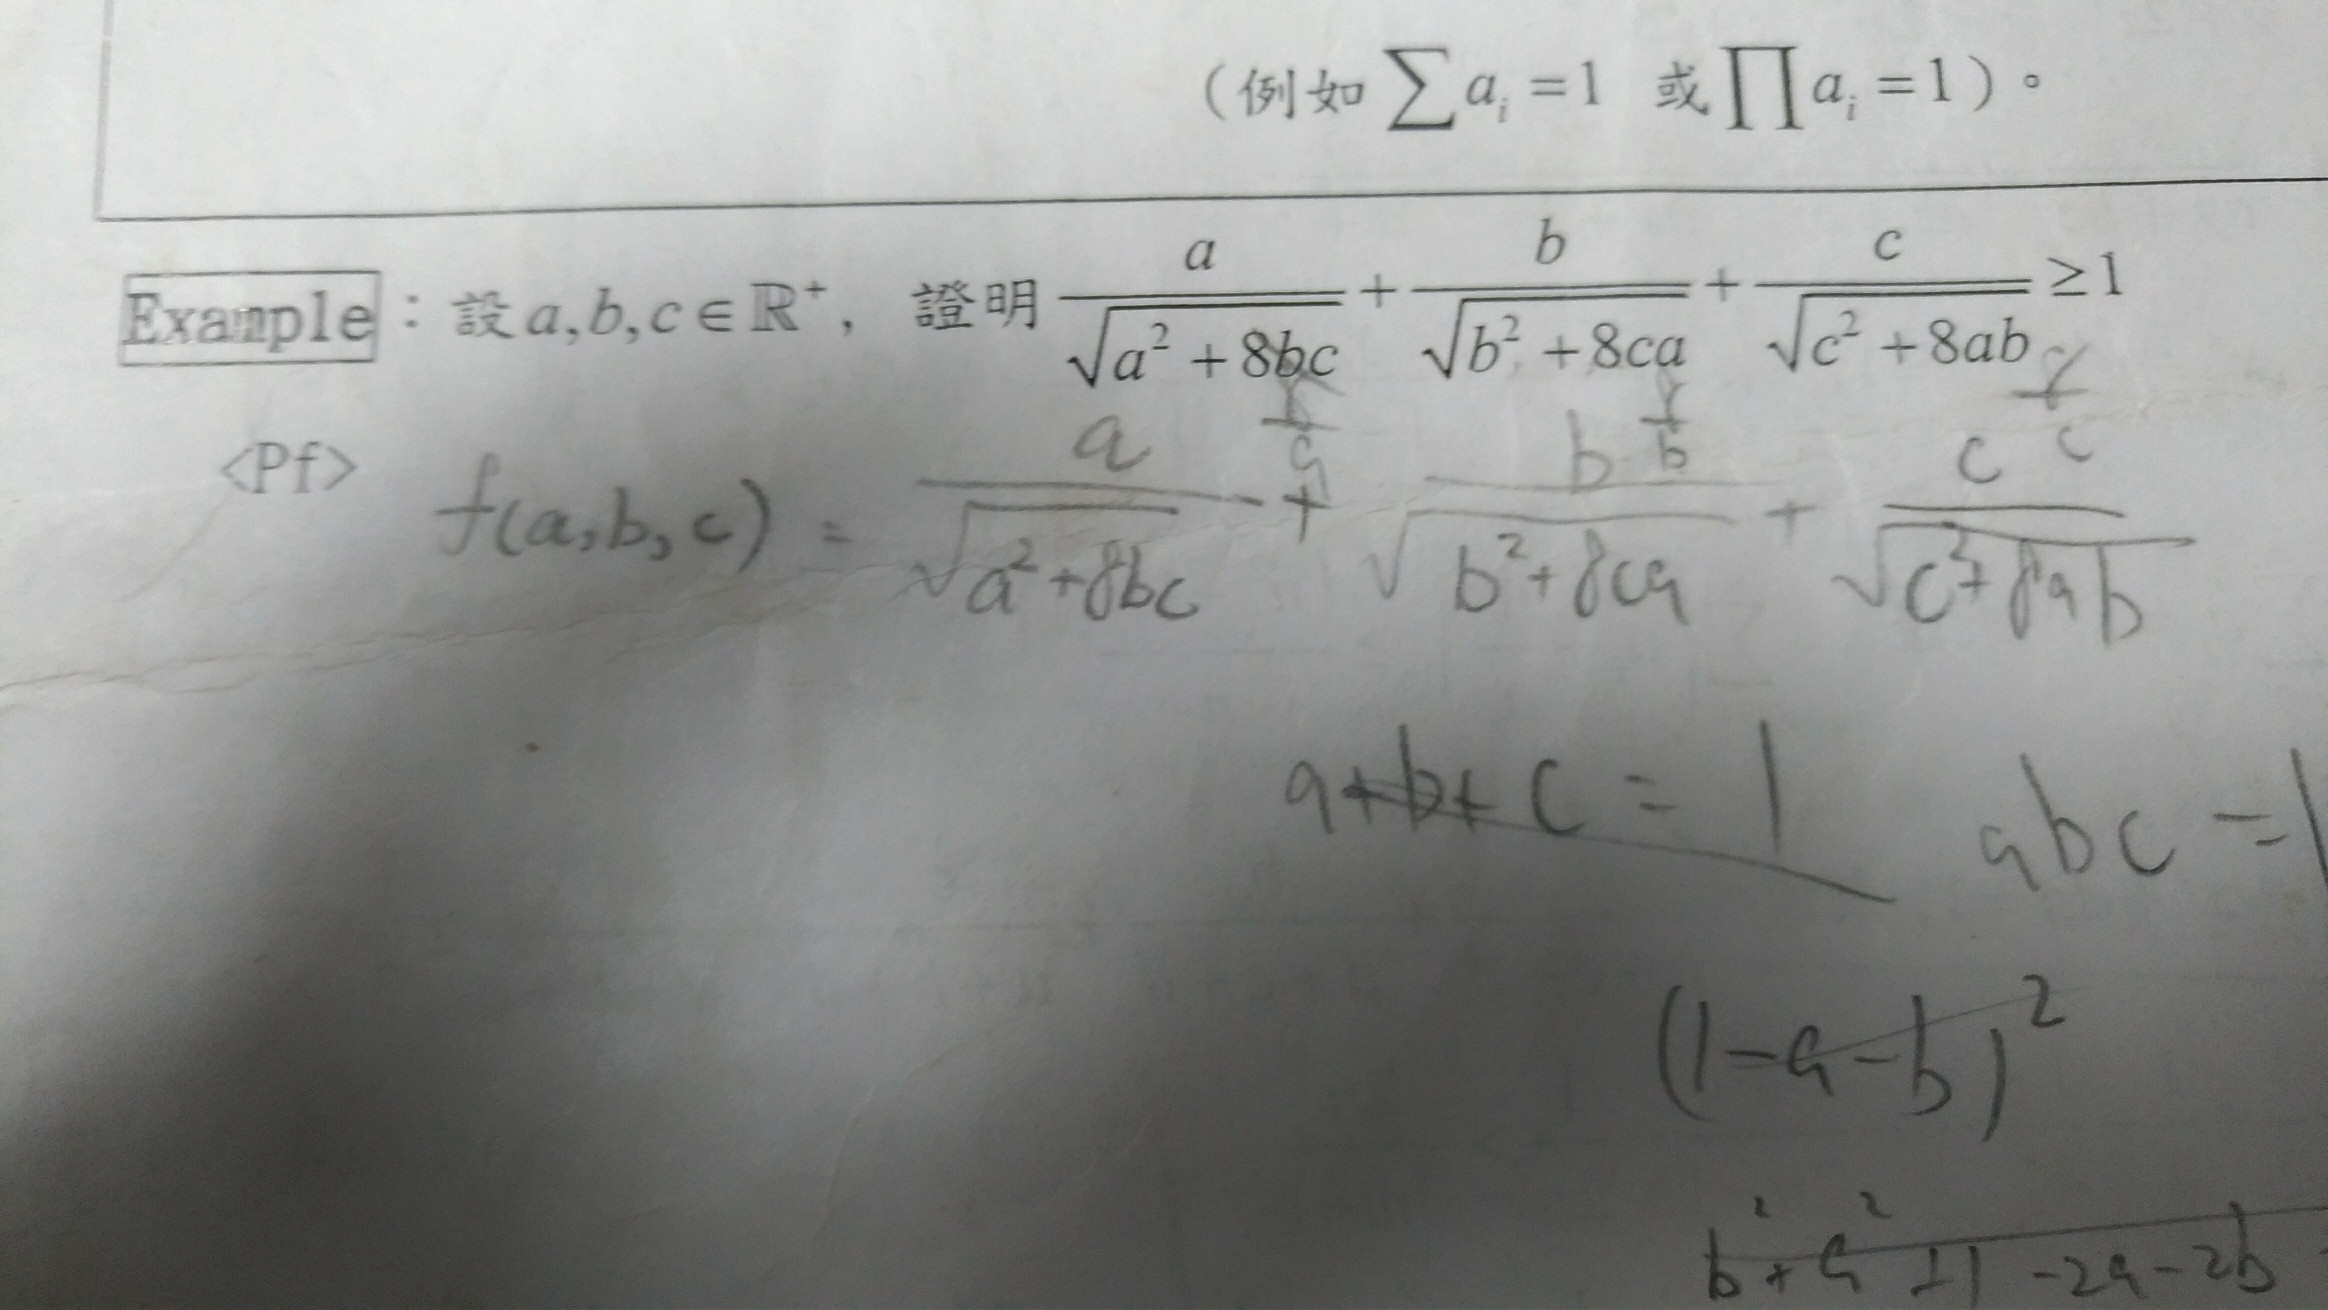 (例如 ∑ aᵢ = 1 或 ∏ aᵢ = 1)。
Example:設 a, b, c ∈ ℝ⁺, 證明 a/√(a² + 8bc) + b/√(b² + 8ca) + c/√(c² + 8ab) ≥ 1
<Pf> f(a,b,c) = a/√(a²+8bc) + b/√(b²+8ca) + c/√(c²+8ab)
a+b+c = 1 abc = 1
(1-a-b)²
b²+a²+1-2a-2b